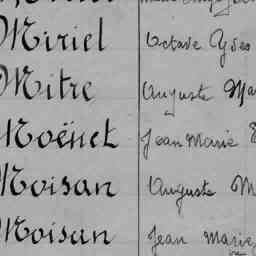 Miriel Octave Yves
Mitre Auguste Ma
Moënet Jean Marie
Moisan Auguste M
Moisan Jean Marie